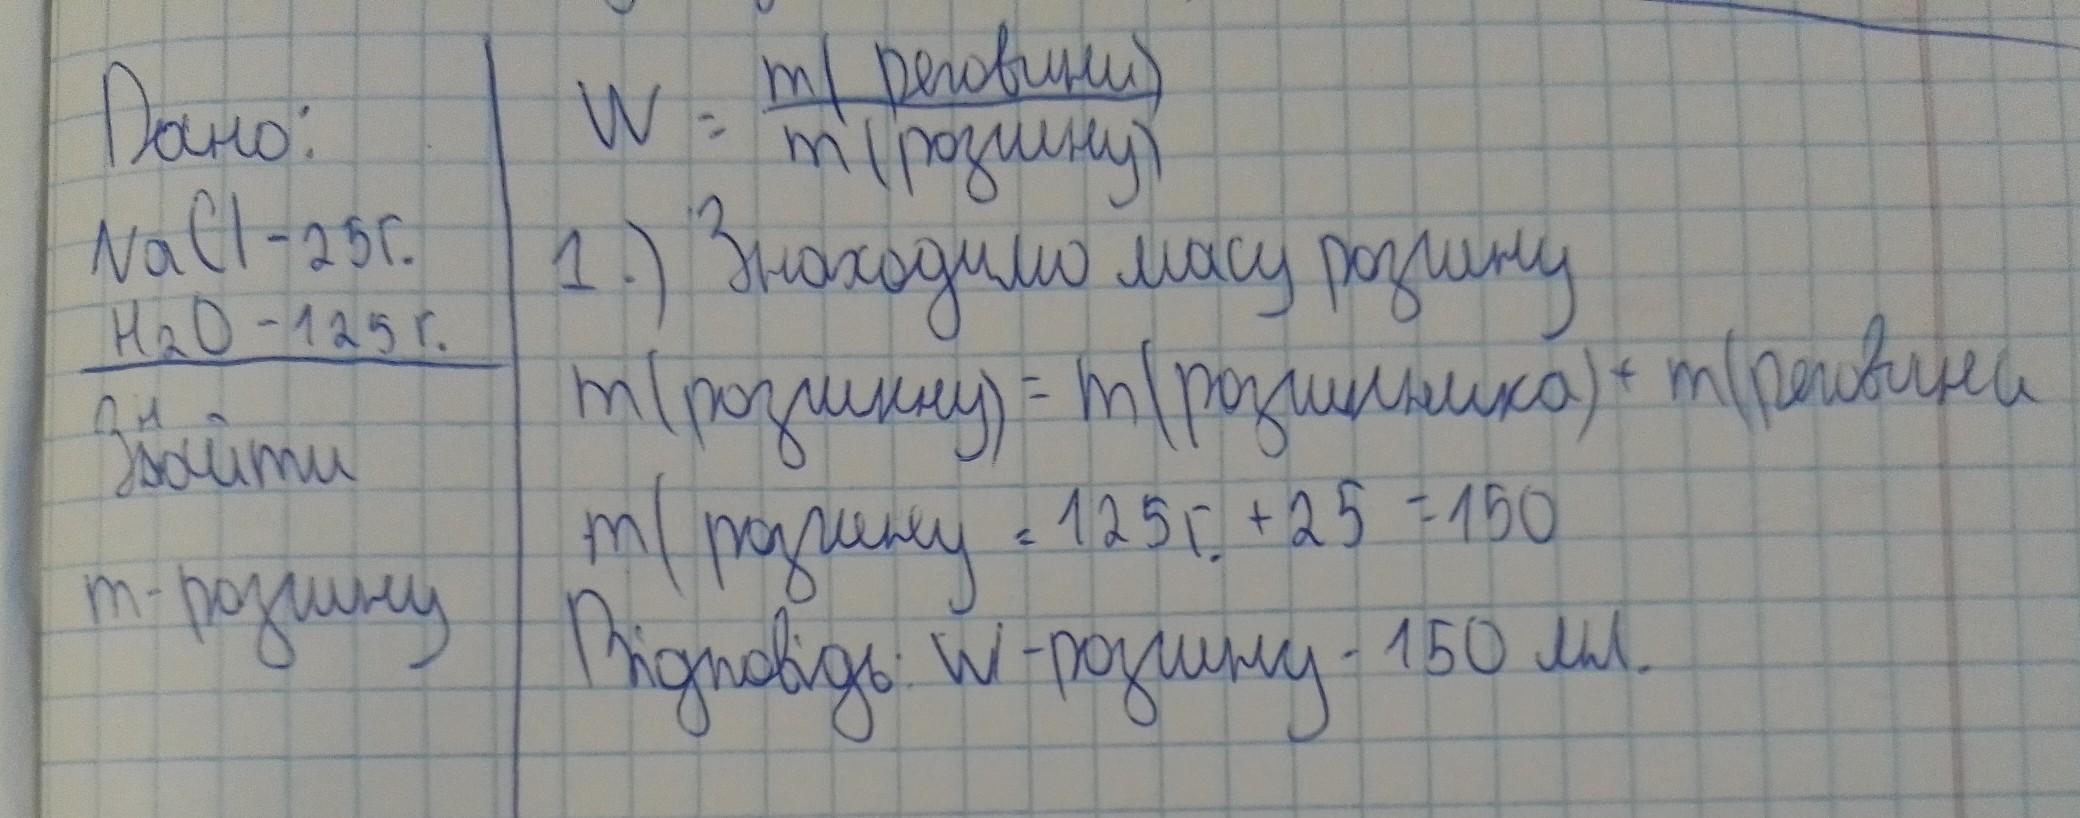 Дано:
NaCl - 25г.
H2O - 125г.
Знайти
m - розчину
W = m( речовини) / m(розчину)
1.) Знаходимо масу розчину
m(розчину) = m(розчинника) + m(речовини
m( розчину = 125г. + 25 = 150
Відповідь: W - розчину - 150 мл.